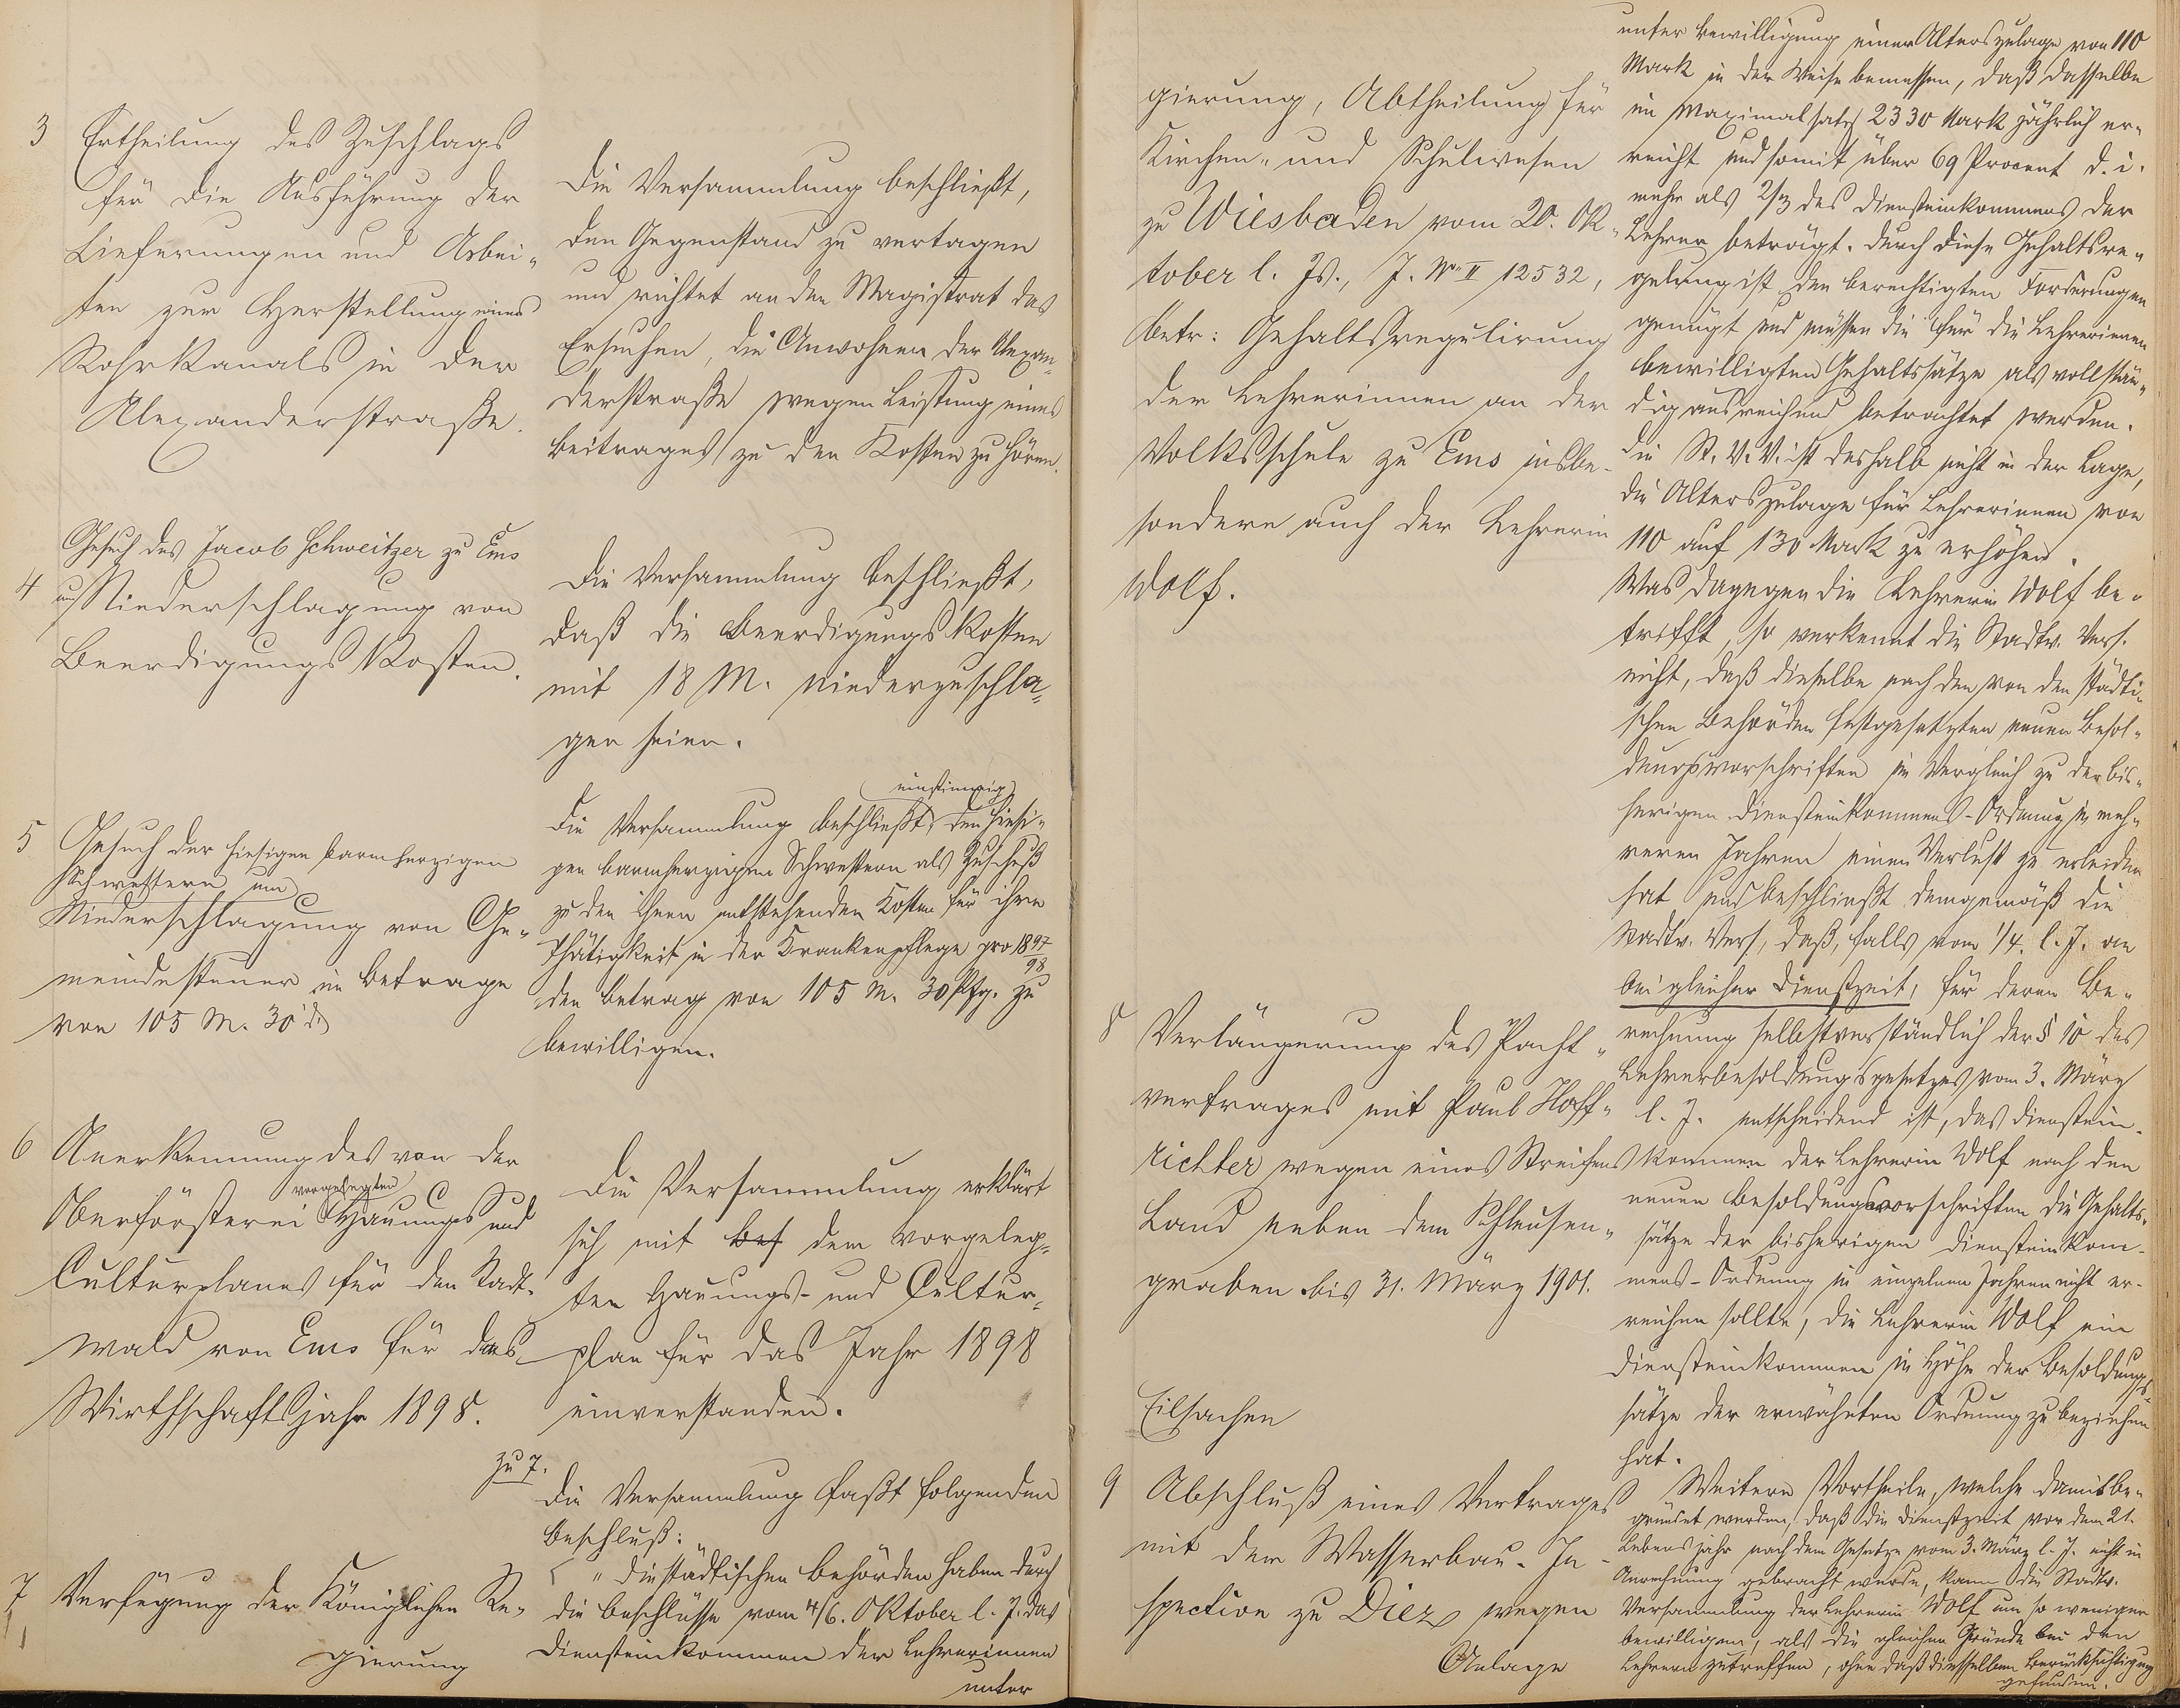 3 Ertheilung des Zuschlags
für die Ausführung der
Lieferungen und Arbei-
ten zur Herstellung eines
Rohrkanals in der
Alexanderstraße.
Die Versammlung beschließt,
den Gegenstand zu vertagen
und richtet an den Magistrat das
Ersuchen, die Anwohner der Alexan-
derstraße wegen Leistung eines
Beitrages zu den Kosten zu hören.
Gesuch des Jacob Schweitzer zu Ems
4 um Niederschlagung von
Beerdigungskosten.
Die Versammlung beschließt,
daß die Beerdigungskosten
mit 18 M. niederzuschla-
gen seien.
5 Gesuch der hiesigen barmherzigen
Schwestern um
Niederschlagung von Ge-
meindesteuer im Betrage
von 105 M. 30 d.
einstimmig
Die Versammlung beschließt, den hiesi-
gen barmherzigen Schwestern als Zuschuß
zu den ihnen entstehenden Kosten für ihre
Thätigkeit in der Krankenpflege pro 1897/98
den Betrag von 105 M. 30 Pfg. zu
bewilligen.
6 Anerkennung des von der
vorgelegten
Oberförsterei Hauungs und
Culturplanes für den Stadt-
wald von Ems für das
Wirthschaftsjahr 1898.
Die Versammlung erklärt
sich mit bes dem vorgeleg-
ten Hauungs- und Cultur-
plan für das Jahr 1898
einverstanden.
7 Verfügung der Königlichen Re-
gierung
zu 7.
Die Versammlung faßt folgenden
Beschluß:
"Die städtischen Behörden haben durch
die Beschlüsse vom 4/6. Oktober l. J. das
Diensteinkommen der Lehrerinnen
unter
gierung, Abtheilung für
Kirchen- und Schulwesen
zu Wiesbaden vom 20. Ok-
tober l. Js., J. No II 12532,
betr: Gehaltsregulirung
der Lehrerinnen an der
Volksschule zu Ems insbe-
sondere auch der Lehrerin
Wolf.
8 Verlängerung des Pacht-
vertrages mit Paul Hoff-
richter wegen eines Streifens
Land neben dem Schleusen-
graben bis 31. März 1901.
Eilsachen
9 Abschluß eines Vertrages
mit der Wasserbau-In-
spection zu Diez wegen
Anlage
unter Bewilligung einer Alterszulage von 110
Mark in der Weise bemessen, daß dasselbe
im Maximalsatz 2330 Mark jährlich er-
reicht und somit über 69 Procent d. i.
mehr als 2/3 des Diensteinkommens der
Lehrer beträgt. Durch diese Gehaltsre-
gelung ist den berechtigten Forderungen
genügt und müssen die für die Lehrerinnen
bewilligten Gehaltssätze als vollstän-
dig ausreichend betrachtet werden.
Die St. V. V. ist deshalb nicht in der Lage,
die Alterszulage für Lehrerinnen von
110 auf 130 Mark zu erhöhen.
Was dagegen die Lehrerin Wolf be-
trifft, so verkennt die Stadtv. Vers.
nicht, daß dieselbe nach den von den städti-
schen Behörden festgesetzten neuen Besol-
dungsvorschriften im Vergleich zu der bis-
herigen Diensteinkommens-Ordnung in meh-
reren Jahren einen Verlust zu erleiden
hat und beschließt demgemäß die
Stadtv. Vers., daß, falls vom 1/4. l. J. an
bei gleicher Dienstzeit, für deren Be-
rechnung selbstverständlich der § 10 des
Lehrerbesoldungsgesetzes vom 3. März
l. J. entscheidend ist, das Dienstein-
kommen der Lehrerin Wolf nach den
neuen Besoldungsvorschriften die Gehalts-
sätze der bisherigen Diensteinkom-
mens-Ordnung in einzelnen Jahren nicht er-
reichen sollte, die Lehrerin Wolf ein
Diensteinkommen in Höhe der Besoldungs-
sätze der erwähnten Ordnung zu beziehen
hat.
Weitere Vortheile, welche damit be-
gründet werden, daß die Dienstzeit vor dem 21.
Lebensjahr nach dem Gesetze vom 3. März l. J. nicht in
Anrechnung gebracht wurde, kann die Stadtv.
Versammlung der Lehrerin Wolf um so weniger
bewilligen, als die gleichen Gründe bei den
Lehrern zutreffen, ohne daß dieselben Berücksichtigung
gefunden.